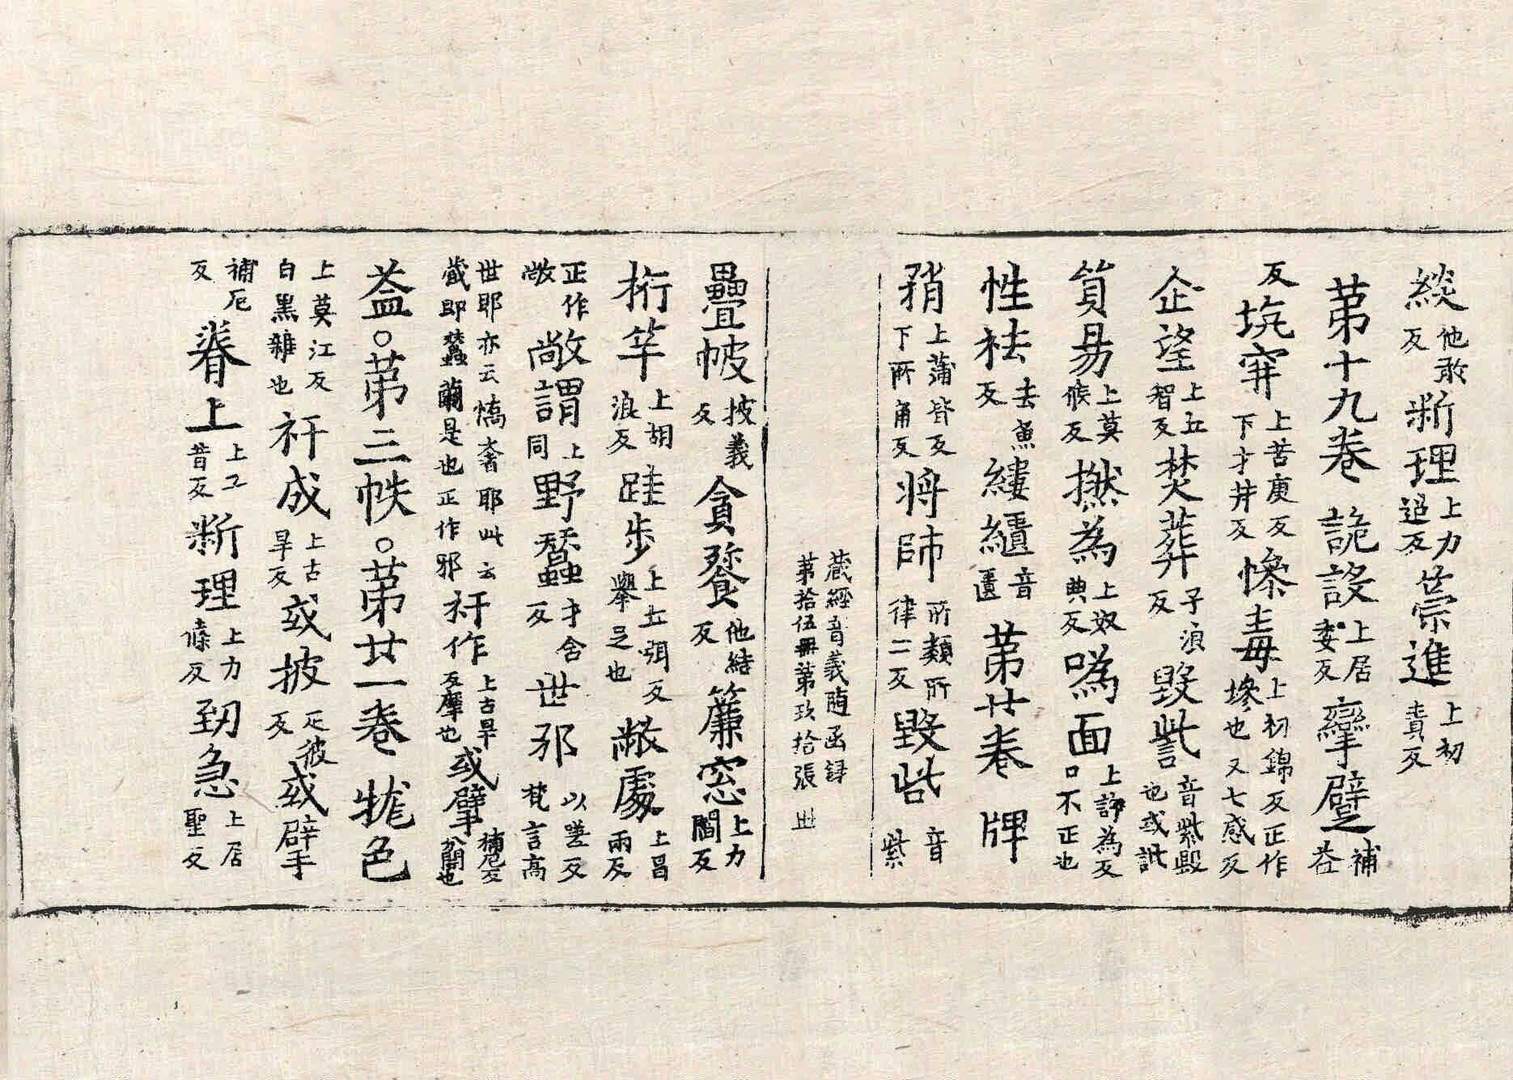 緂他敢反斷理上力過反崇進上初責反
苐十九卷 詭詜上居委反㝈躄補茬
反 坑穽上苦庚反下才井反慘毒上初錦反正作墋也又七感反
企望上丘智反焚葬子浪反毀訾音紫毀也或訿
貿易上莫候反撚為上奴典反喎面上諍為反口不正也
性祛去魚反縷繢音匱苐廿卷 牌
矟上蒲皆反下所角反將師所類所律二反毀呰音紫
藏經音義隨函録
苐拾伍冊苐玖拾張 丗
疊帔披義反貪餮他結反簾窓上力閻反
桁竿上胡浪反跬步上丘弭反舉足也敞處上昌兩反
正作敞 敞謂上同野蠶才含反世邪以嗟反梵言高
世耶亦云憍奢耶此云蠶即蠶繭是也正作邪 衦作上古旱反摩也或擘補厄反分開也
盖。苐三帙。苐廿一卷 牻色
上莫江反白黑雜也 衦成上古旱反或披疋彼反或擘
補厄反 脊上上工昔反斷理上力條反刧急上居聖反